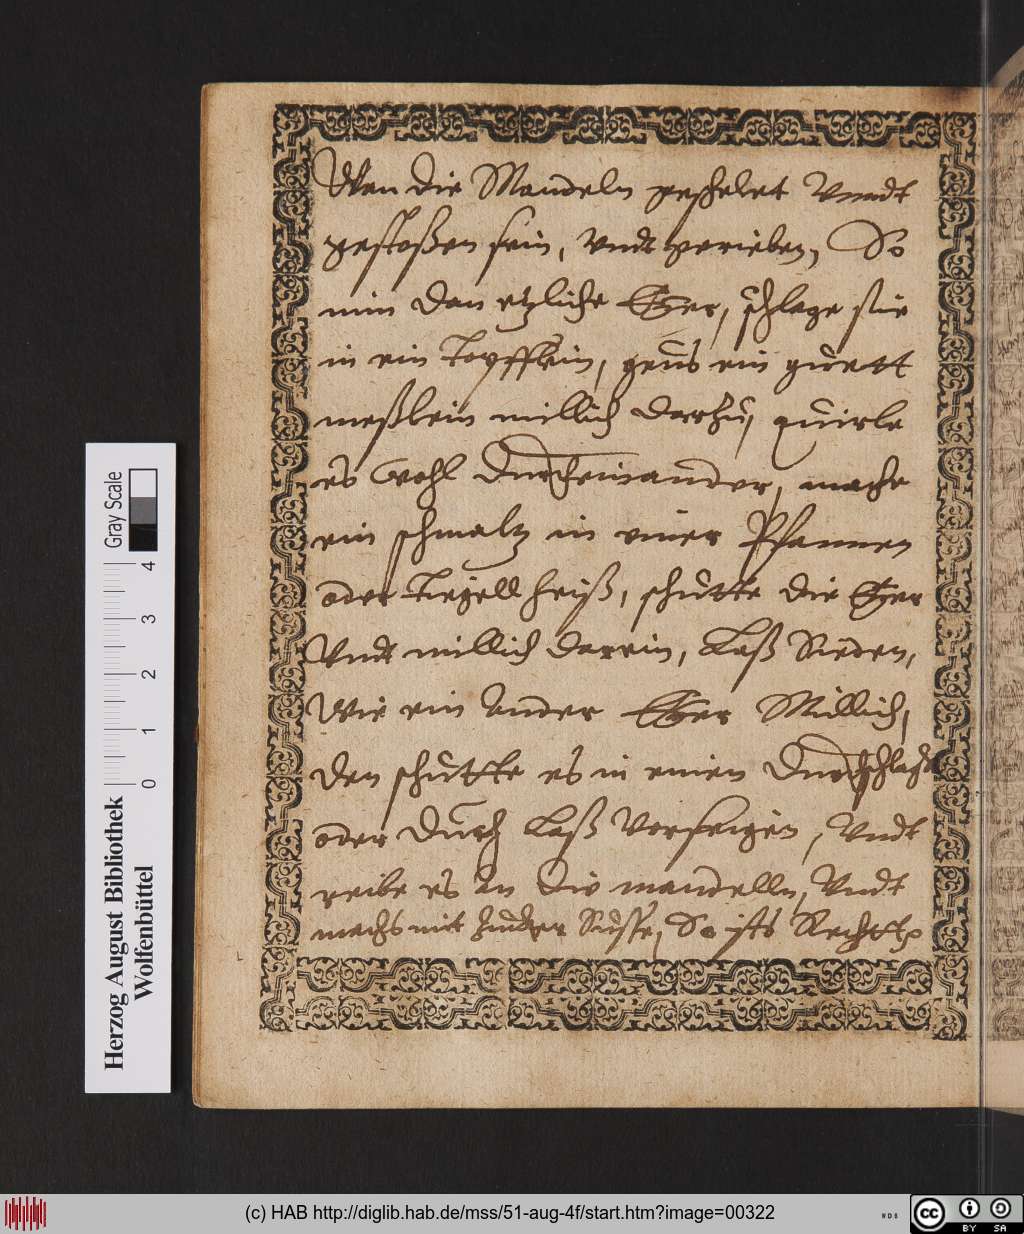 Wan die Mandeln geschelet Vnndt
gestoßen sein, vndt gerieben, So
nim dan etzliche Eyer, schlage sie
in ein Töpfflein, geus ein quart
meßlein millich darzu, quirle
es Wohl durcheinander, mache
ein schmaltz in einer Pfannen
oder Tiegell heiß, schutte die Eyer
Vndt millich darein, Laß Sieden,
Wie ein Ander Eyer Millich,
den schutte es in einen Durchschlag
oder Durch Laß Vorseigen, Vndt
reibe es An die mandelln, Vndt
machs mit Zucker Susse, So ists Recht
Gray Scale
0 1 2 3 4
Herzog August Bibliothek
Wolfenbüttel
(c) HAB http://diglib.hab.de/mss/51-aug-4f/start.htm?image=00322
WDB
cc BY SA